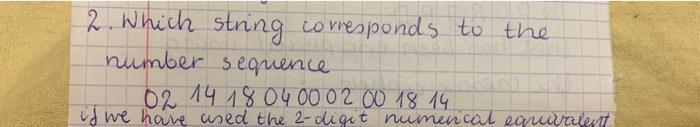 2. Which string corresponds to the
number sequence
02 14 18 04 00 02 00 18 14
if we have used the 2-digit numerical equivalent